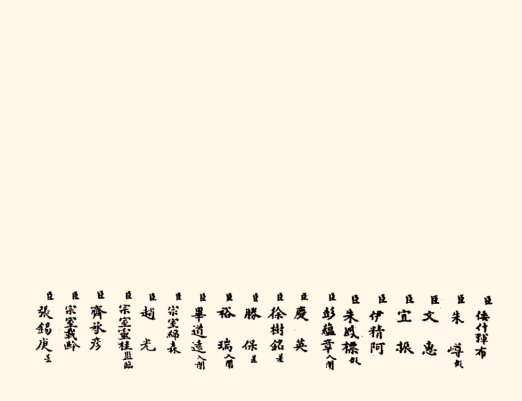 臣倭什琿布
臣朱嶟
臣文惠
臣宜振
臣伊精阿
臣朱鳳標
臣彭蘊章入闈
臣慶英
臣徐樹銘差
臣勝保差
臣裕瑞入闈
臣畢道遠入闈
臣宗室綿森
臣趙光
臣宗室靈桂監臨
臣齊承彥
臣宗室載齡
臣張錫庚差